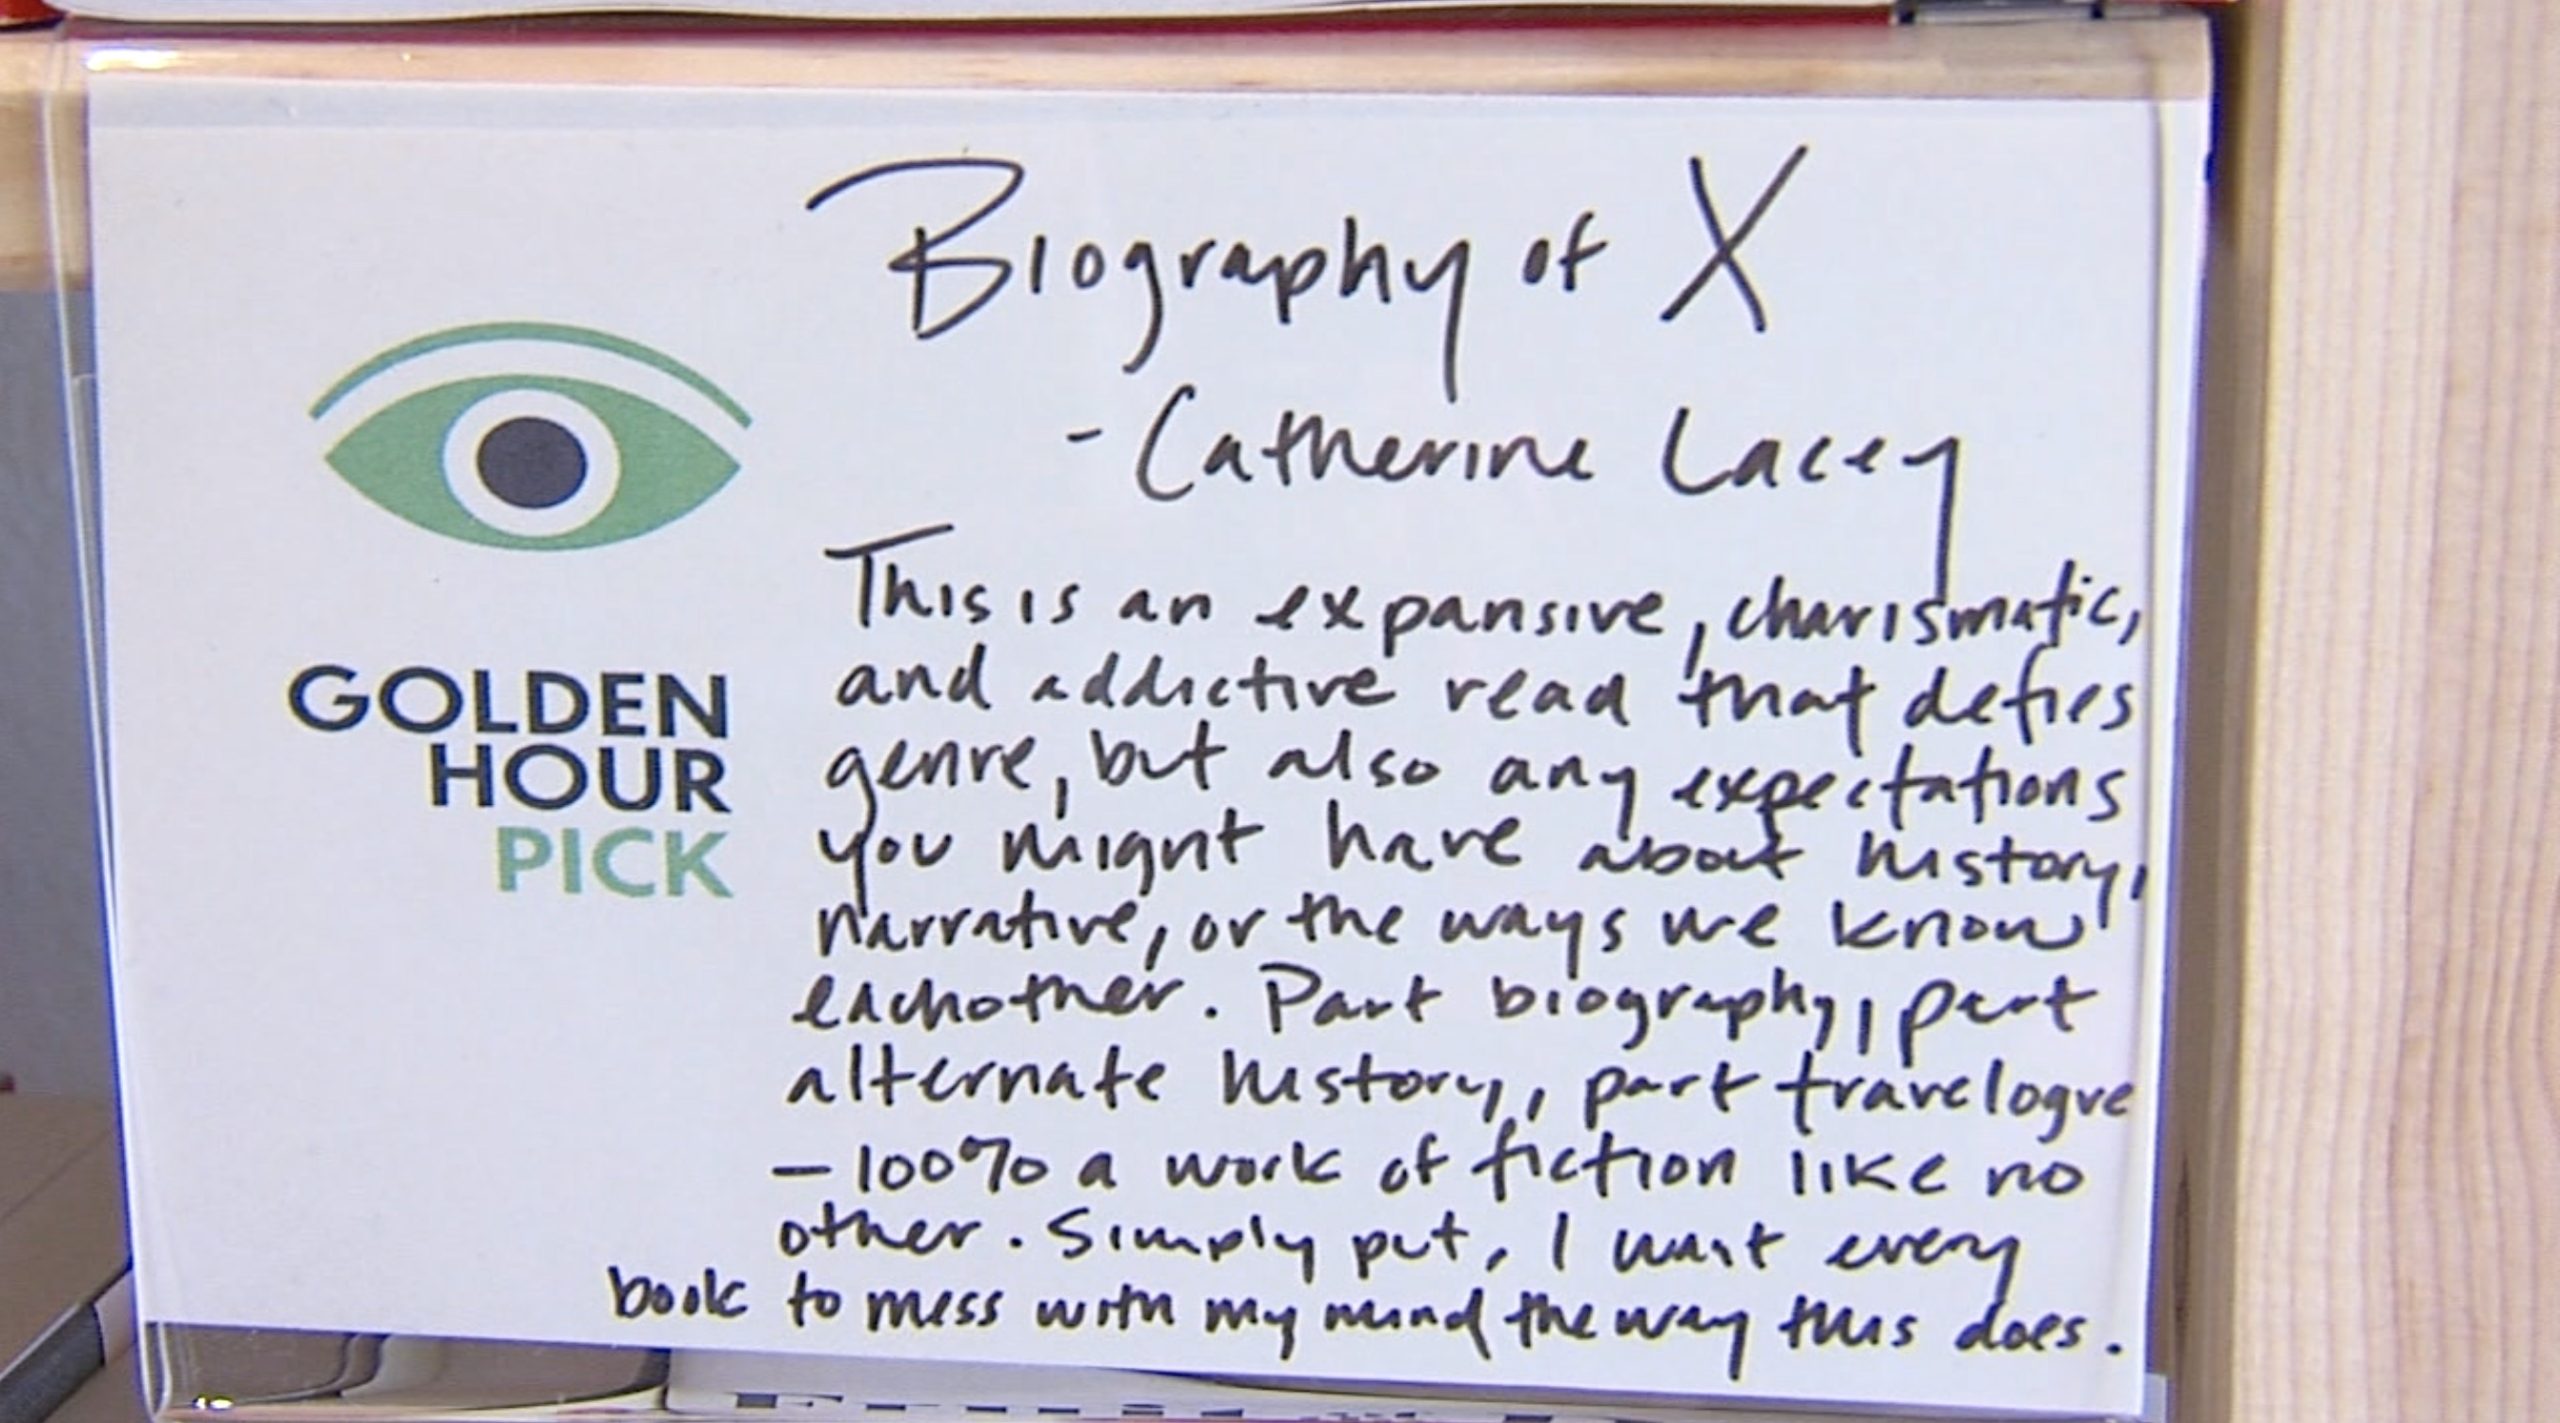 Biography of X
- Catherine Lacey
This is an expansive, charismatic,
and addictive read that defies
genre, but also any expectations
you might have about history,
narrative, or the ways we know
eachother. Part biography, part
alternate history, part travelogue
— 100% a work of fiction like no
other. Simply put, I want every
book to mess with my mind the way this does.
GOLDEN
HOUR
PICK